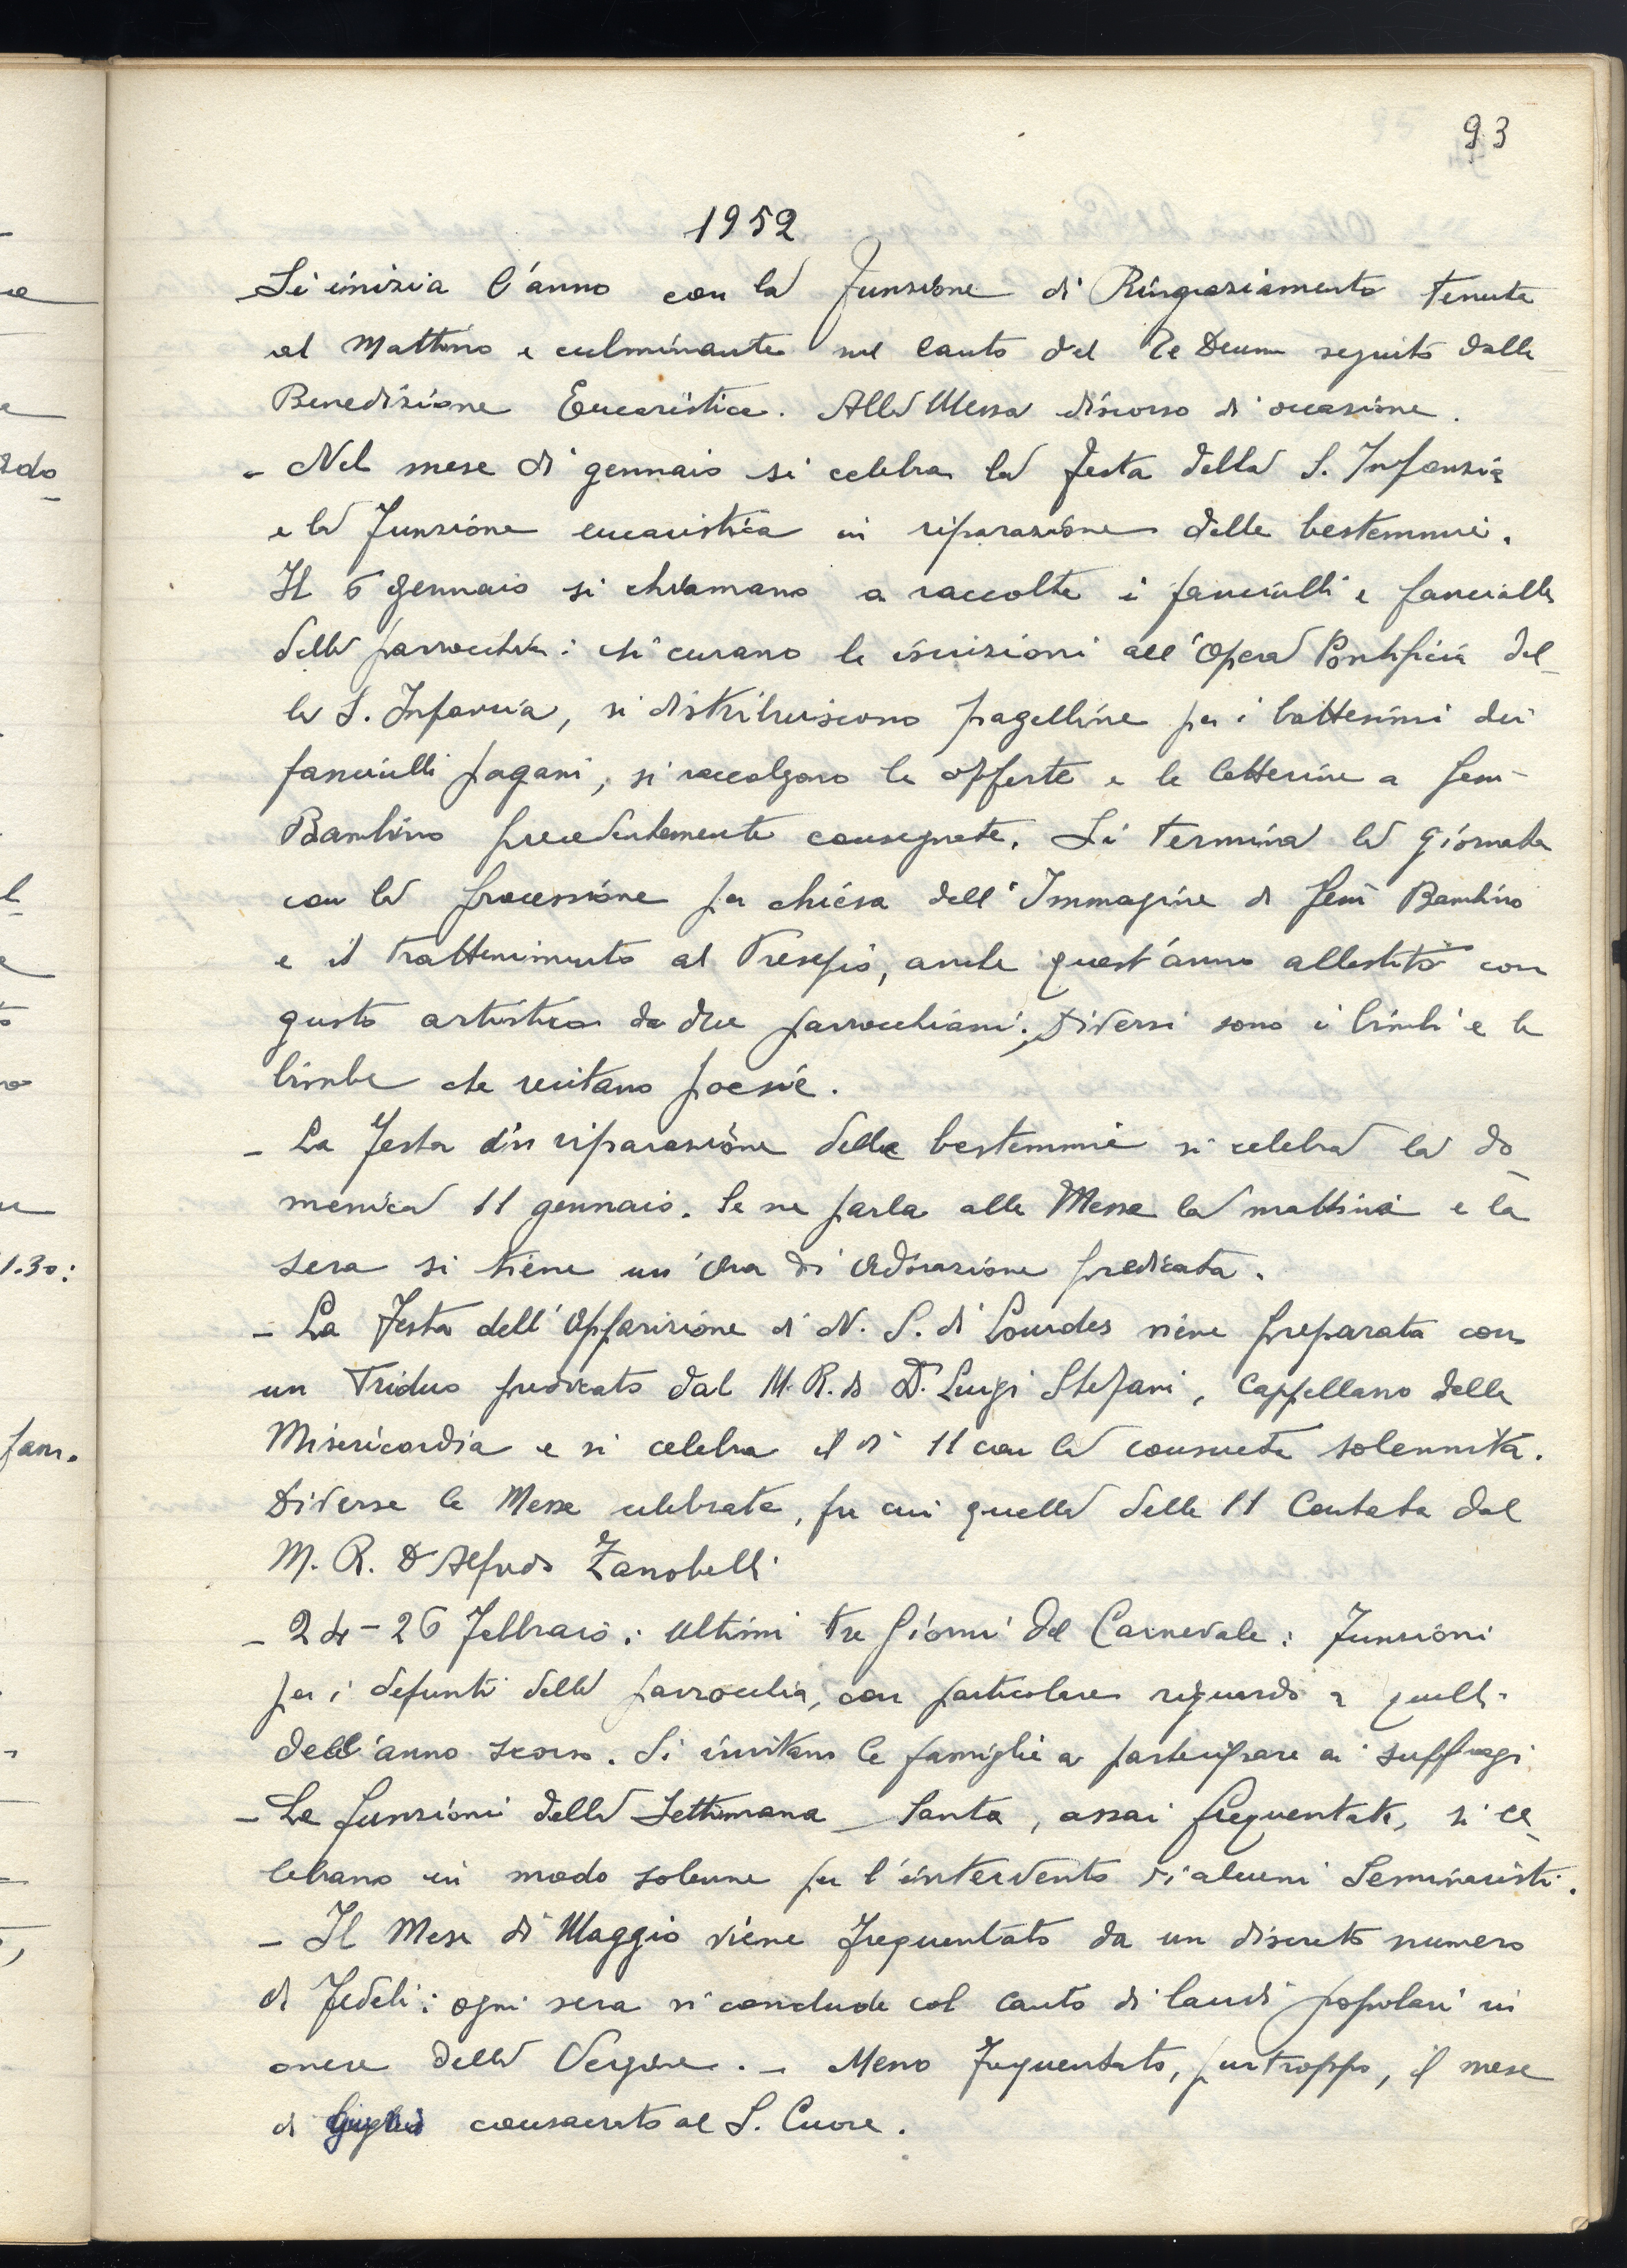 93
1952
Si inizia l'anno con la Funzione di Ringraziamento tenuta
al Mattino e culminante nel canto del Te Deum seguito dalla
Benedizione Eucaristica. Alla Messa discorso di occasione.
- Nel mese di gennaio si celebra la festa della S. Infanzia
e la Funzione eucaristica in riparazione delle bestemmie.
Il 6 gennaio si chiamano a raccolta i fanciulli e fanciulle
della parrocchia: si curano le iscrizioni all'Opera Pontificia del-
la S. Infanzia, si distribuiscono pagelline per i battesimi dei
fanciulli pagani, si raccolgono le offerte e le letterine a Gesù
Bambino precedentemente consegnate. Si termina la giornata
con la processione per chiesa dell'Immagine di Gesù Bambino
e il trattenimento al Presepio, anche quest'anno allestito con
gusto artistico da due parrocchiani. Diversi sono i bimbi e le
bimbe che recitano poesie.
- La Festa di riparazione delle bestemmie si celebra la do-
menica 11 gennaio. Se ne parla alle Messe la mattina e la
sera si tiene un'Ora di Adorazione predicata.
- La Festa dell'Apparizione di N. S. di Lourdes viene preparata con
un Triduo predicato dal M. R. do D. Luigi Stefani, Cappellano della
Misericordia e si celebra il dì 11 con la consueta solennità.
Diverse le Messe celebrate, fra cui quella delle 11 Cantata dal
M. R. D Alfredo Zanobelli
- 24-26 Febbraio: Ultimi tre Giorni del Carnevale: Funzioni
per i defunti della parrocchia, con particolare riguardo a quelli
dell'anno scorso. Si invitano le famiglie a partecipare ai suffragi
- Le funzioni della Settimana Santa, assai frequentate, si ce-
lebrano in modo solenne per l'intervento di alcuni Seminaristi.
- Il Mese di Maggio viene frequentato da un discreto numero
di Fedeli: ogni sera si conclude col canto di laudi popolari in
onore della Vergine. - Meno frequentato, purtroppo, il mese
di consacrato al S. Cuore.